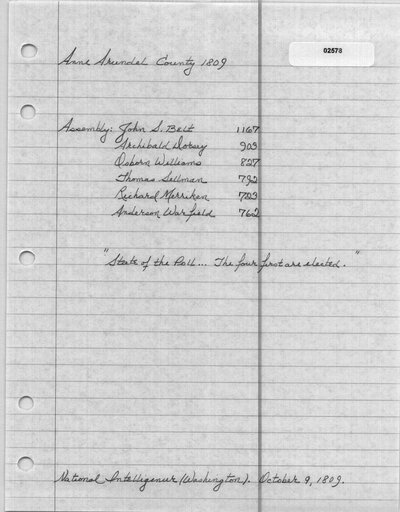 02578
Anne Arundel County 1809
Assembly: John S. Belt 1167
Archibald Dorsey 903
Osborn Williams 827
Thomas Sellman 792
Richard Merriken
Anderson Warfield 762
"State of the Poll... The four first are elected."
National Intelligencer (Washington). October 9, 1809.